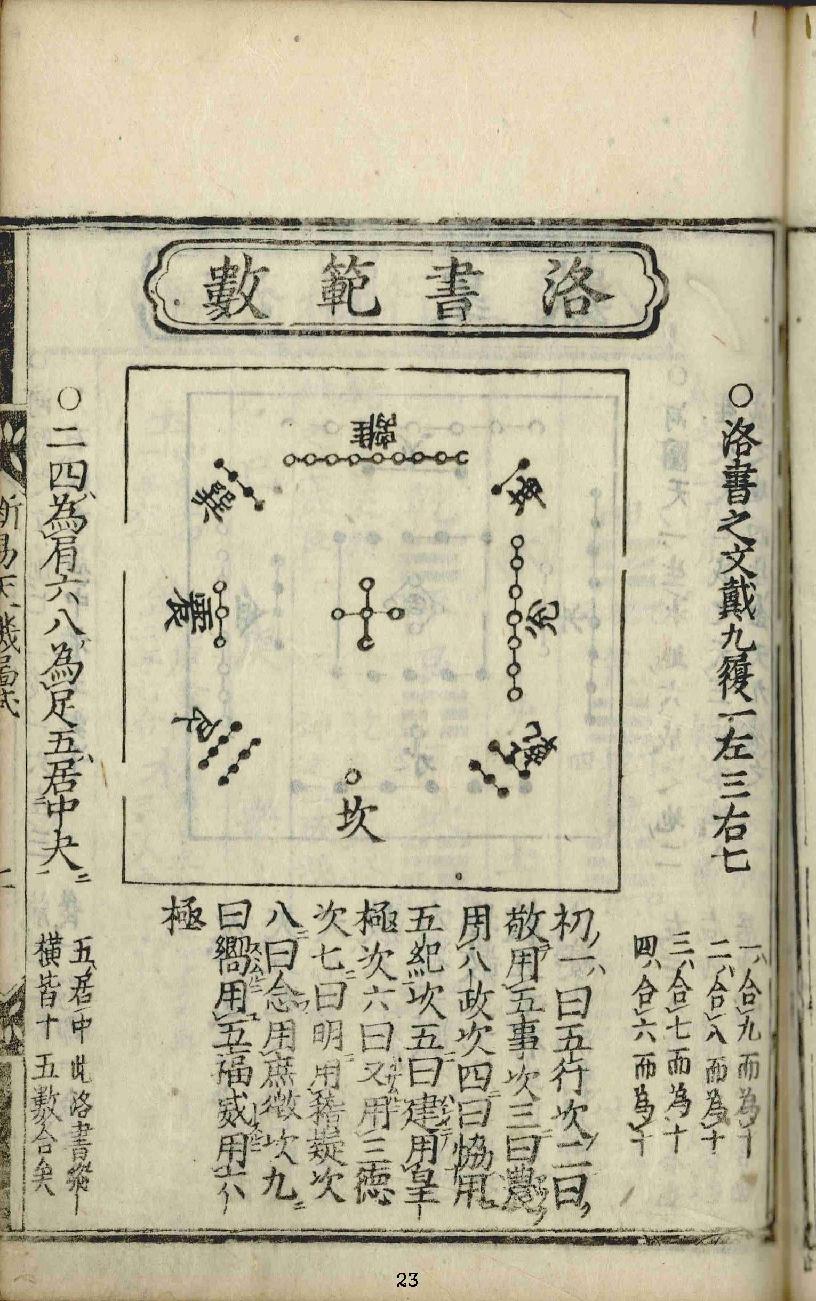 洛書範數
○洛書之文戴九履一左三右七
一合九而為十
二合八而為十
三合七而為十
四合六而為十
離
坤
兌
乾
坎
艮
震
巽
初一曰五行次二曰
敬用五事次三曰農
用八政次四曰協用
五紀次五曰建用皇
極次六曰乂用三德
次七曰明用稽疑次
八曰念用庶徵次九
曰嚮用五福威用六
極
○二四為肩六八為足五居中央
五居中此洛書縱
橫皆十五數合矣
新易天機
23